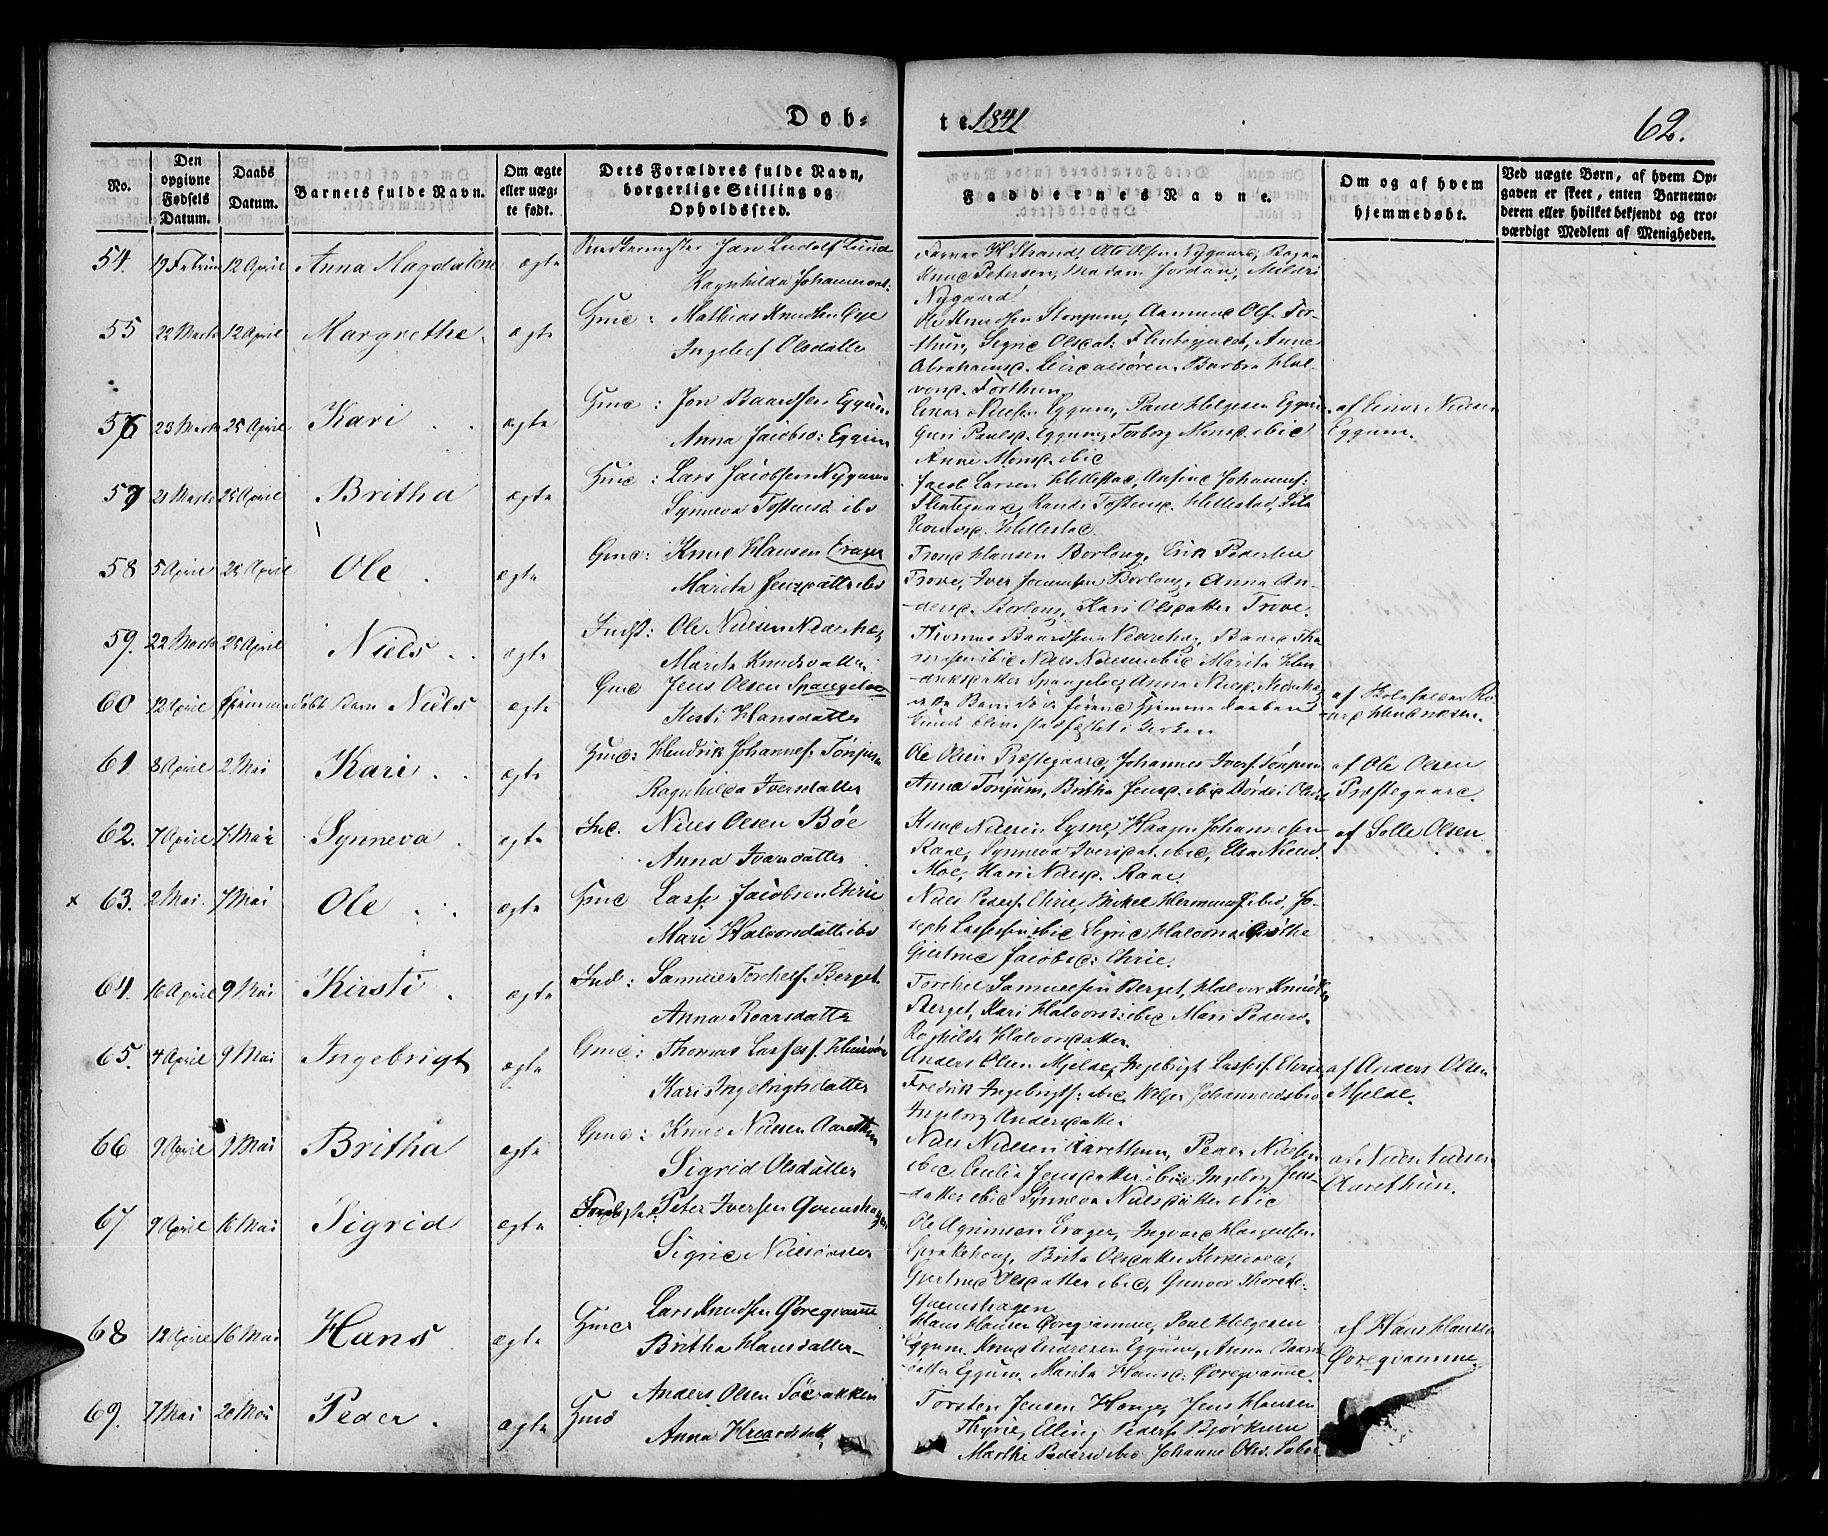 Døb-
te 1841
62.
No.
Den opgivne Fødsels Datum.
Daabs Datum.
Barnets fulde Navn.
Om ægte eller uæg- te født.
Dets Forældres fulde Navn, borgerlige Stilling og Opholdssted.
Faddernes Navne.
Om og af hvem hjemmedøbt.
Ved uægte Børn, af hvem Op- gaven er skeet, enten Barnemo- deren eller hvilket bekjendt og tro- værdigt Medlem af Menigheden.
54. 19 Februar 12 April Anna Magdalene ægte Jan Ludolf Lund
Ragnhilda Johannesdat:
H Strand, Ole Olsen Nygaard,
Knud Petersen, Madam Jordan, Mildri
Nygaard
55 22 Marts 12 April Margrethe ægte Gmd: Mathias Knudsen Øye
Ingelef Olsdatter
Ole Knudsen Stonjum, Aamund Ols. For-
thun, Signe Olsdat: Flentegaard, Anne
Abrahamsd. Lierdalsøren, Barbra Hal-
vorsd. Forthun
56 23 Marts 25 April Kari ægte Gmd: Jon Baardsen Eggum
Anna Jacobsd: Eggum
Einar Nielsen Eggum, Paul Helgesen Eggum
Guri Paulsd. Eggum, Torborg Monsd. ibid
Anne Monsd. ibid
af Einar Nielsen
Eggum.
57 21 Marts 25 April Britha ægte Gmd: Lars Jacobsen Nygaard
Synneva Tostensd ibd
Jacob Larsen Hillestad, Ansine Johannes:
Flentegaard, Randi Tostensd. Hillestad,
Hillestad.
58 5 April 25 April Ole ægte Gmd: Knud Hansen Erager
Marita Jensdatter ibd
Trond Hansen Borloug, Erik Pedersen
Trove, Iver Jonsen Borloug, Anna An-
dersd. Borloug, Kari Olsdatter Trove.
59. 22 Marts 25 April Niels ægte Indst: Ole Nielsen Nedrehæg
Marita Knudsdatter
Thomas Baardsen Nedrehæg, Baard Tho-
mesen ibid Niels Nielsen ibid Marita Hen-
driksdatter Spangeloe, Anna Nielsd. Nedrehæg
60 12 April hjemmedøbt Barn Niels ægte Gmd Jens Olsen Spangeloe
Kisti Hansdatter
dette Barn døde førend hjemmedaaben
kunde blive stadfæstet i Kirken
61 8 April 2 Mai Kari ægte Gmd: Hendrik Johannes. Tønjum
Ragnhilda Iversdatter
Ole Olsen Præstegaard, Johannes Ivers. Tønjum
Anna Tønjum, Britha Jensd. ibid Dørdei Olsd.
af Ole Olsen
Præstegaard.
62. 7 April 7 Mai Synneva ægte Ind. Niels Olsen Bøe
Anna Ivarsdatter
Knud Nielsen Lysne, Haagen Johannesen
Raae, Synneva Iversdat. ibid, Elsa Nielsd.
Moe, Kari Nielsd. Raae.
af Solle Olsen
x 63. 2 Mai 7 Mai Ole ægte Gmd Lasse Jacobsen Ehrie
Mari Halvorsdatter ibd
Niels Peders. Ehrie, Mikkel Hermunds. ibd, Jo-
seph Lassesen ibid Sigrid Halvorsd Grøthe
Giertrud Jacobsd: Ehrie.
64. 16 April 9 Mai Kirsti ægte Ind: Samuel Torchels. Berget
Anna Roarsdatter
Torchel Samuelsen Berget, Halvor Knudsen
Berget, Kari Halvorsd: ibid Mari Pedersd.
Ragnhilda Halvorsdatter
65. 4 April 9 Mai Ingebrigt ægte Gmd: Thomas Lasses.
Kari Ingebrigtsdatter
Anders Olsen Mjelde, Ingebrigt Lasses. Ehrie,
Fredrik Ingebrigts. ibid, Helge Johannesd ibid
Ingeborg Andersdatter
af Anders Olsen
Mjelde.
66 9 April 9 Mai Britha ægte Gmd: Knud Nielsen Aarethun
Sigrid Olsdatter
Niels Nielsen Aarethun, Peder Nielsen
ibid Cecilia Jensdatter ibid Ingeborg Jens-
datter ibid Synneva Nielsdatter ibid
af Niels Nielsen
Aarethun.
67 9 April 16 Mai Sigrid ægte Peter Iversen Qvemshagen
Sigrid Nielsdatter
Ole Agrimsen Erager, Ingvard Haagensen
Sprakehoug, Brita Olsdatter
Giertrud Olsdatter ibid, Gunvor Thoresd.
Qvemshagen
68 12 April 16 Mai Hans ægte Gmd Lars Knudsen Øvregvamme
Britha Hansdatter
Hans Hansen Øvregvamme, Paul Helgesen
Eggum, Knud Endresen Eggum, Anna Baard-
datter Eggum, Marita Hansd. Øvregvamme.
af Hans Hansen
Øvregvamme.
69. 7 Mai 20 Mai Peder ægte Gmd Anders Olsen
Anna
Torsten Jensen Hauge, Jens Hansen
Thyrie, Elling Peders. Bjørkum
Marthe Pedersd ibid Johanne Olsd.